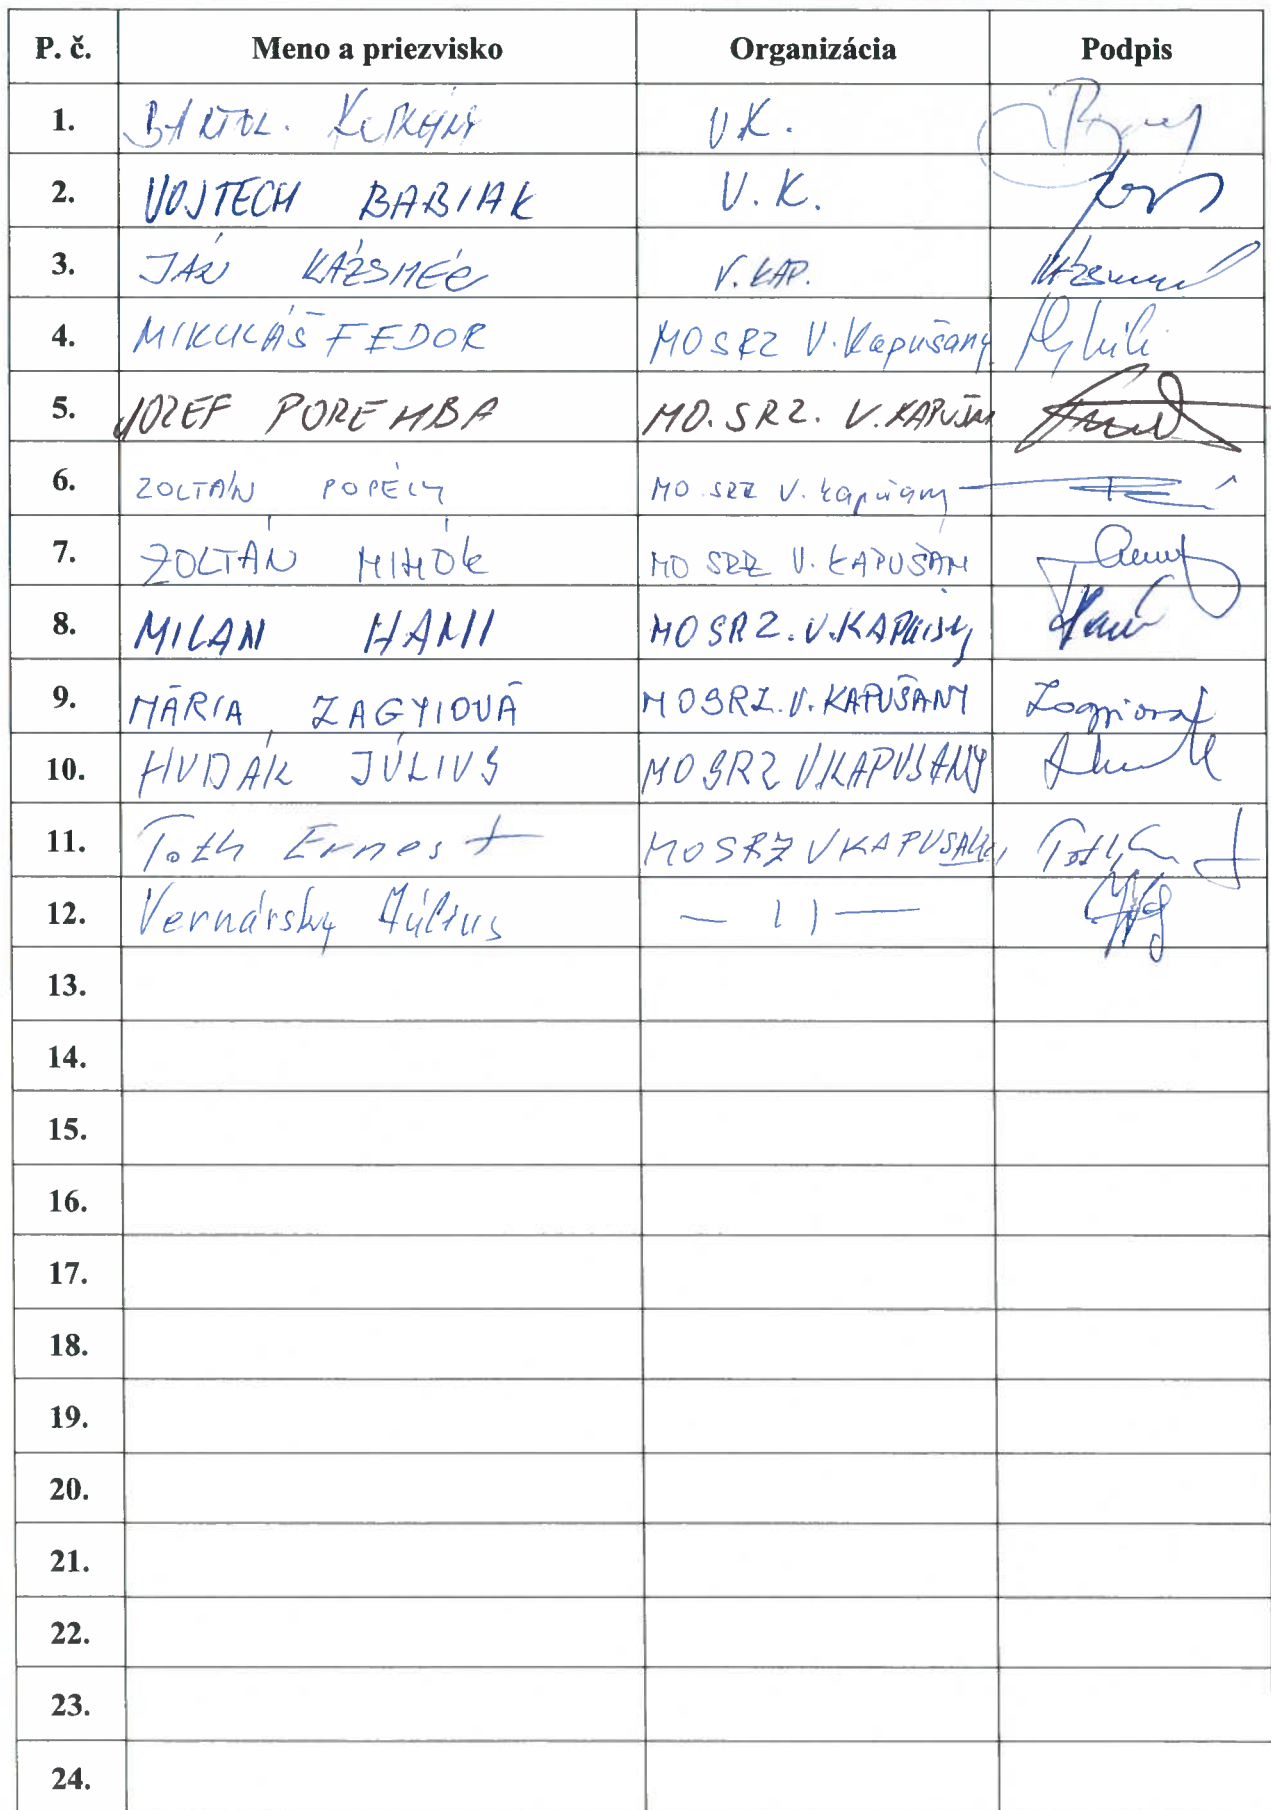 P. č. Meno a priezvisko Organizácia Podpis
1. BARTOL. VK.
2. VOJTECH BABIAK V.K.
3. JÁN KÁZSMÉR V.KAP.
4. MIKULÁŠ FEDOR MOSRZ V.Kapušany
5. JOZEF POREMBA MO.SRZ. V.KAPUŠAN
6. ZOLTÁN POPÉLY MO SRZ V. Kapušany
7. ZOLTÁN MIHÓK MO SRZ V. KAPUŠANY
8. MILAN HANI MOSRZ.V.KAPUŠANY
9. MÁRIA ZAGYIOVÁ MOSRZ.V.KAPUŠANY Zagyiová
10. HUDÁK JÚLIUS MOSRZ V.KAPUŠANY
11. Toth Ernest MOSRZ VKAPUSANY Toth
12. Vernársky Július — 11 —
13.
14.
15.
16.
17.
18.
19.
20.
21.
22.
23.
24.